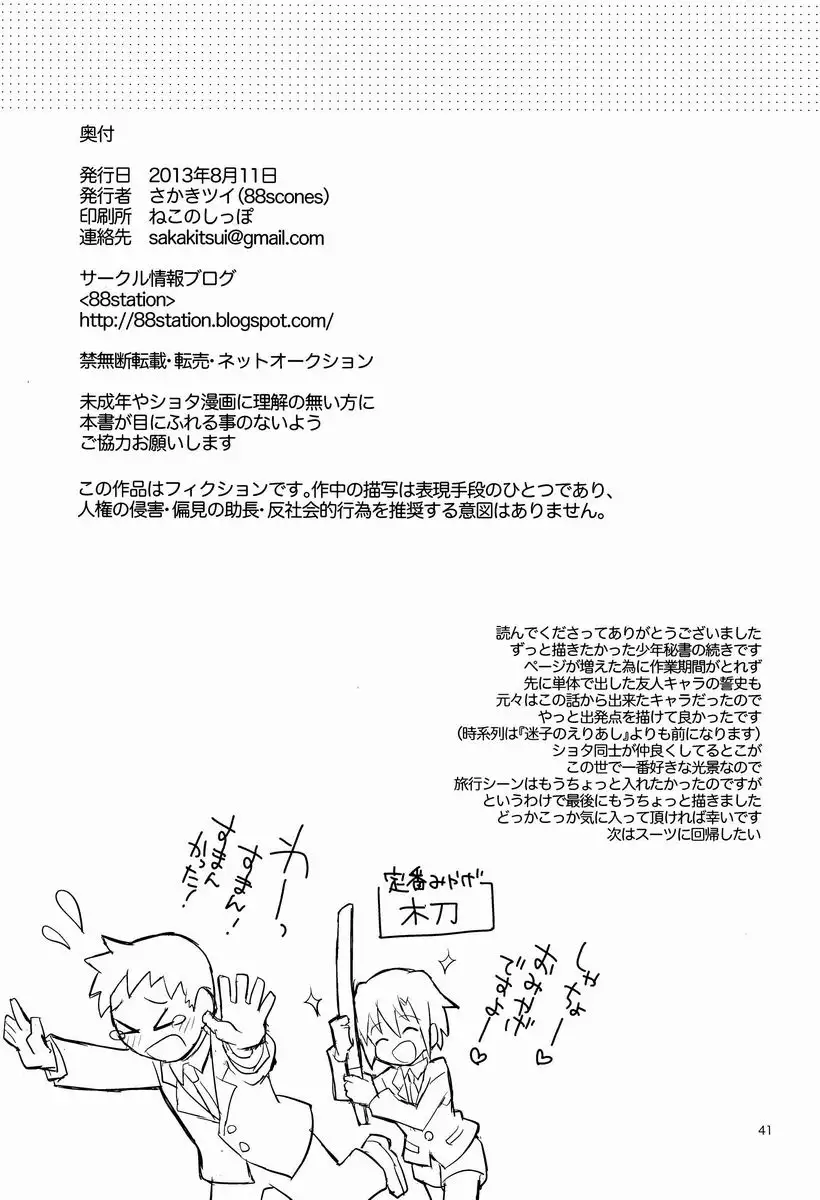 奥付
発行日　2013年8月11日
発行者　さかきツイ（88scones）
印刷所　ねこのしっぽ
連絡先　sakakitsui@gmail.com
サークル情報ブログ
<88station>
http://88station.blogspot.com/
禁無断転載・転売・ネットオークション
未成年やショタ漫画に理解の無い方に
本書が目にふれる事のないよう
ご協力お願いします
この作品はフィクションです。作中の描写は表現手段のひとつであり、
人権の侵害・偏見の助長・反社会的行為を推奨する意図はありません。
読んでくださってありがとうございました
ずっと描きたかった少年秘書の続きです
ページが増えた為に作業期間がとれず
先に単体で出した友人キャラの誓史も
元々はこの話から出来たキャラだったので
やっと出発点を描けて良かったです
（時系列は『迷子のえりあし』よりも前になります）
ショタ同士が仲良くしてるとこが
この世で一番好きな光景なので
旅行シーンはもうちょっと入れたかったのですが
というわけで最後にもうちょっと描きました
どっかこっか気に入って頂ければ幸いです
次はスーツに回帰したい
わーっ
すまん！
すまん
かった！
定番みやげ
木刀
しゃちょー♡
おみやげ
ですよー♡
41